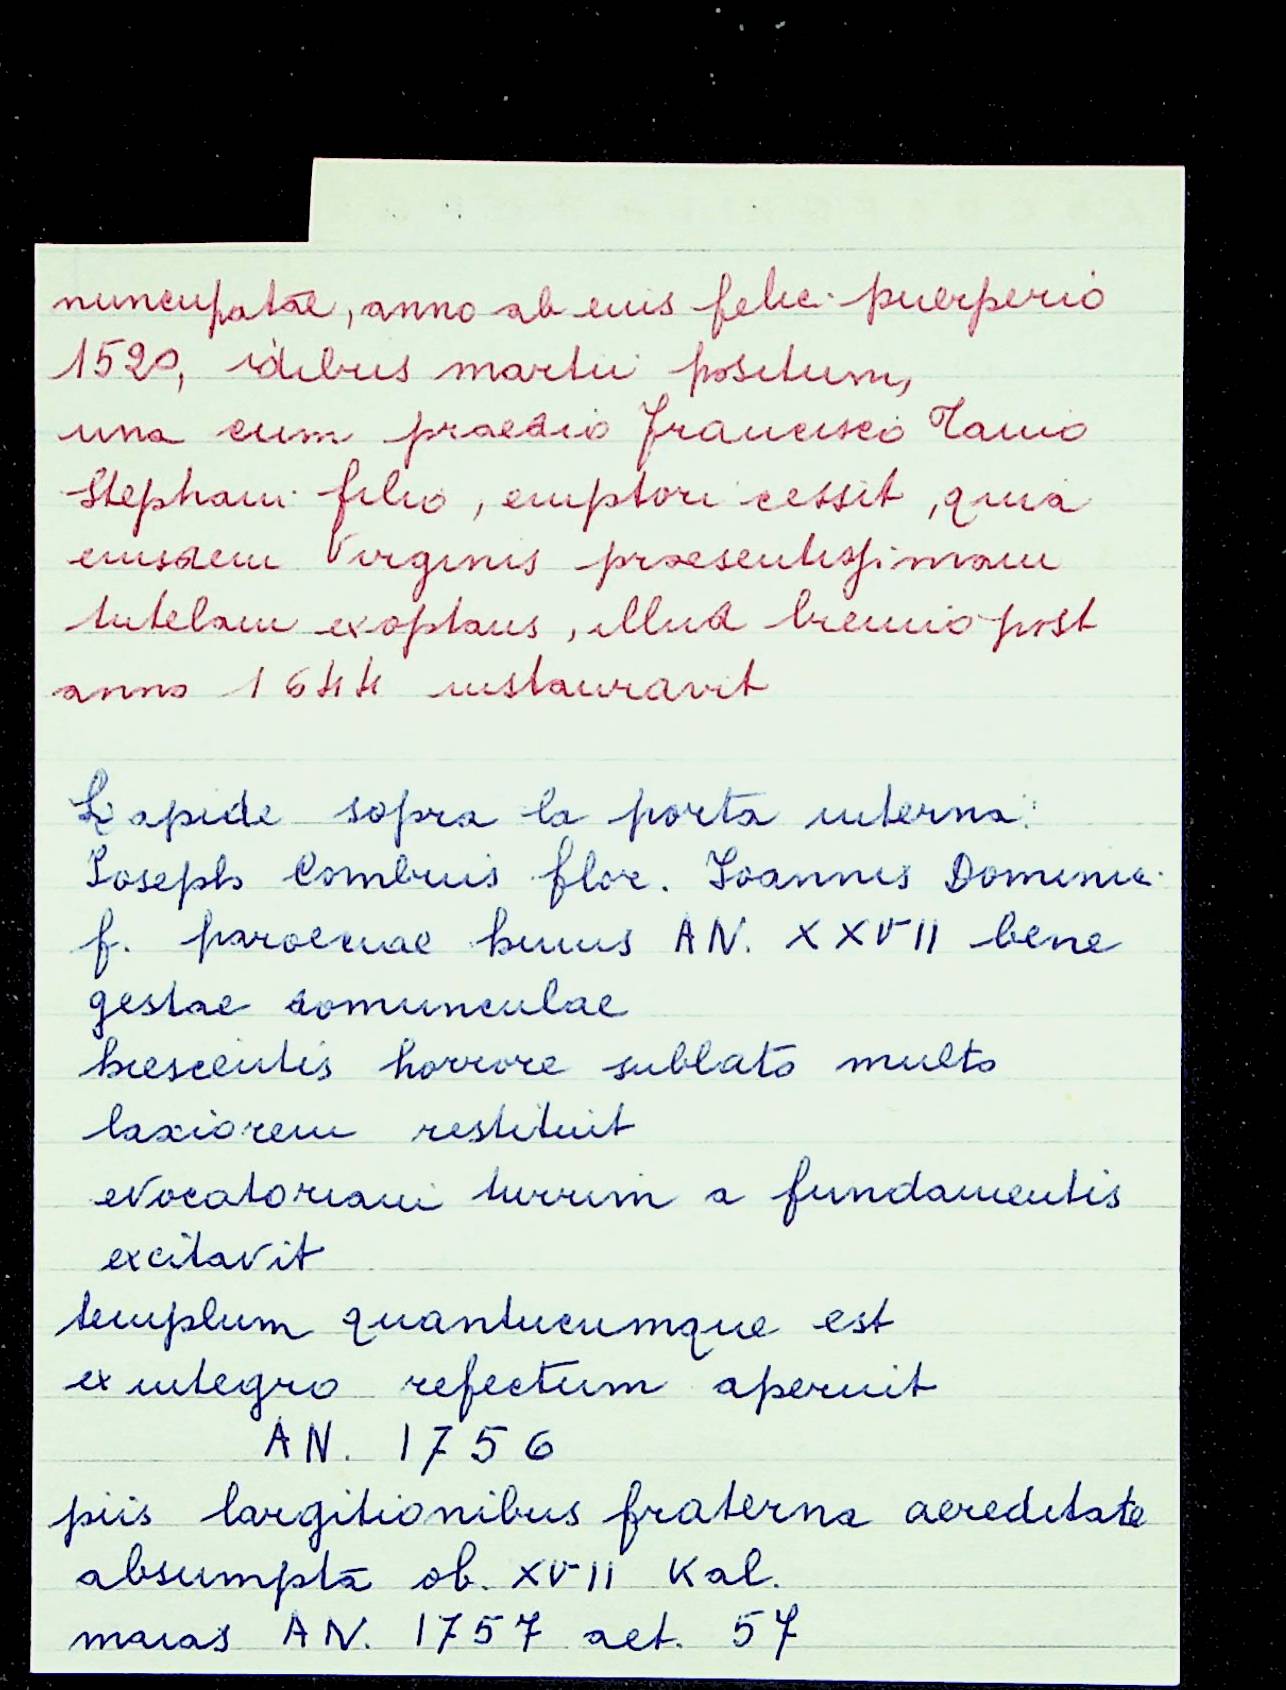 nuncupatae, anno ab eius felici puerperio
1520, idibus martii positum,
una cum praedio Francisco Tanio
Stephani filio, emptori cessit, quia
eiusdem Virginis praesentissimam
tutelam exoptans, illud biennio post
anno 1644 instauravit
Lapide sopra la porta interna:
Joseph Combius flor. Joannis Dominici
f. paroeciae huius AN. XXVII bene
gestae domunculae
hiescentis horrore sublato multo
laxiorem restituit
evocatoriam turrim a fundamentis
excitavit
templum quantucumque est
ex integro refectum aperuit
AN. 1756
piis largitionibus fraterna aereditate
absumpta ob. XVII Kal.
maias AN. 1757 aet. 57